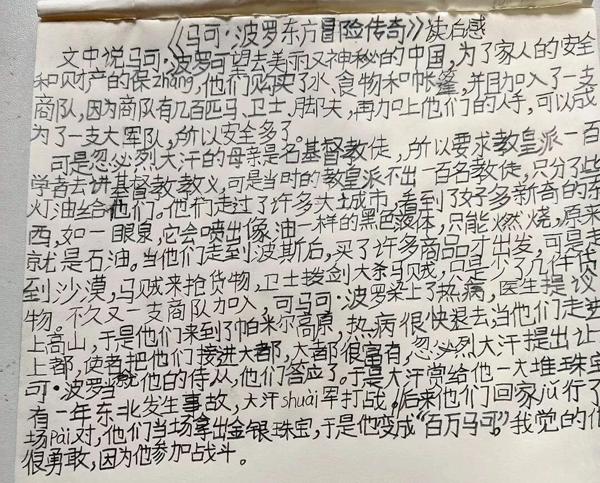 《马可·波罗东方冒险传奇》读后感
文中说马可·波罗可望去美丽又神秘的中国,为了家人的安全
和财产的保zhàng,他们购买了水、食物和帐篷,并且加入了一支
商队,因为商队有几百匹马、卫士、脚夫,再加上他们的人手,可以成
为了一支大军队,所以安全多了。
可是忽必烈大汗的母亲是名基督教徒,所以要求教皇派一百
学者去讲基督教教义,可是当时的教皇派不出一百名教徒,只分了些
灯油给他们。他们走过了许多大土城市,看到了好多新奇的东
西,如一眼泉,它会喷出像油一样的黑色液体,只能燃烧,原来
就是石油。当他们走到波斯后,买了许多商品才出发,可是走
到沙漠,马贼来抢货物,卫士拨剑大杀马贼,只是少了几件货
物。不久又一支商队加入,可马可·波罗染上了热病,医生提议
上高山,于是他们来到了帕米尔高原,热病很快退去当他们走进
上都,使者把他们接进大都,大都很富有,忽必烈大汗提出让
可·波罗当他的侍从,他们答应了。于是大汗赏给他一大堆珠宝
有一年东北发生事故,大汗shuài军打战。后来他们回家jǔ行了
场pài对,他们当场拿出金银珠宝,于是他变成“百万马可”。我觉的他
很勇敢,因为他参加战斗。